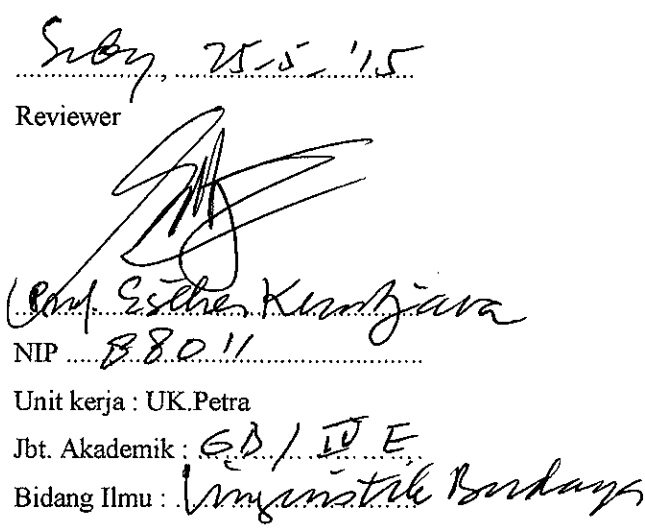 Sby, 25-5-'15
Reviewer
(Prof. Esther Kuntjara
NIP 88011
Unit kerja : UK.Petra
Jbt. Akademik : GB / IV E
Bidang Ilmu : Linguistik Budaya